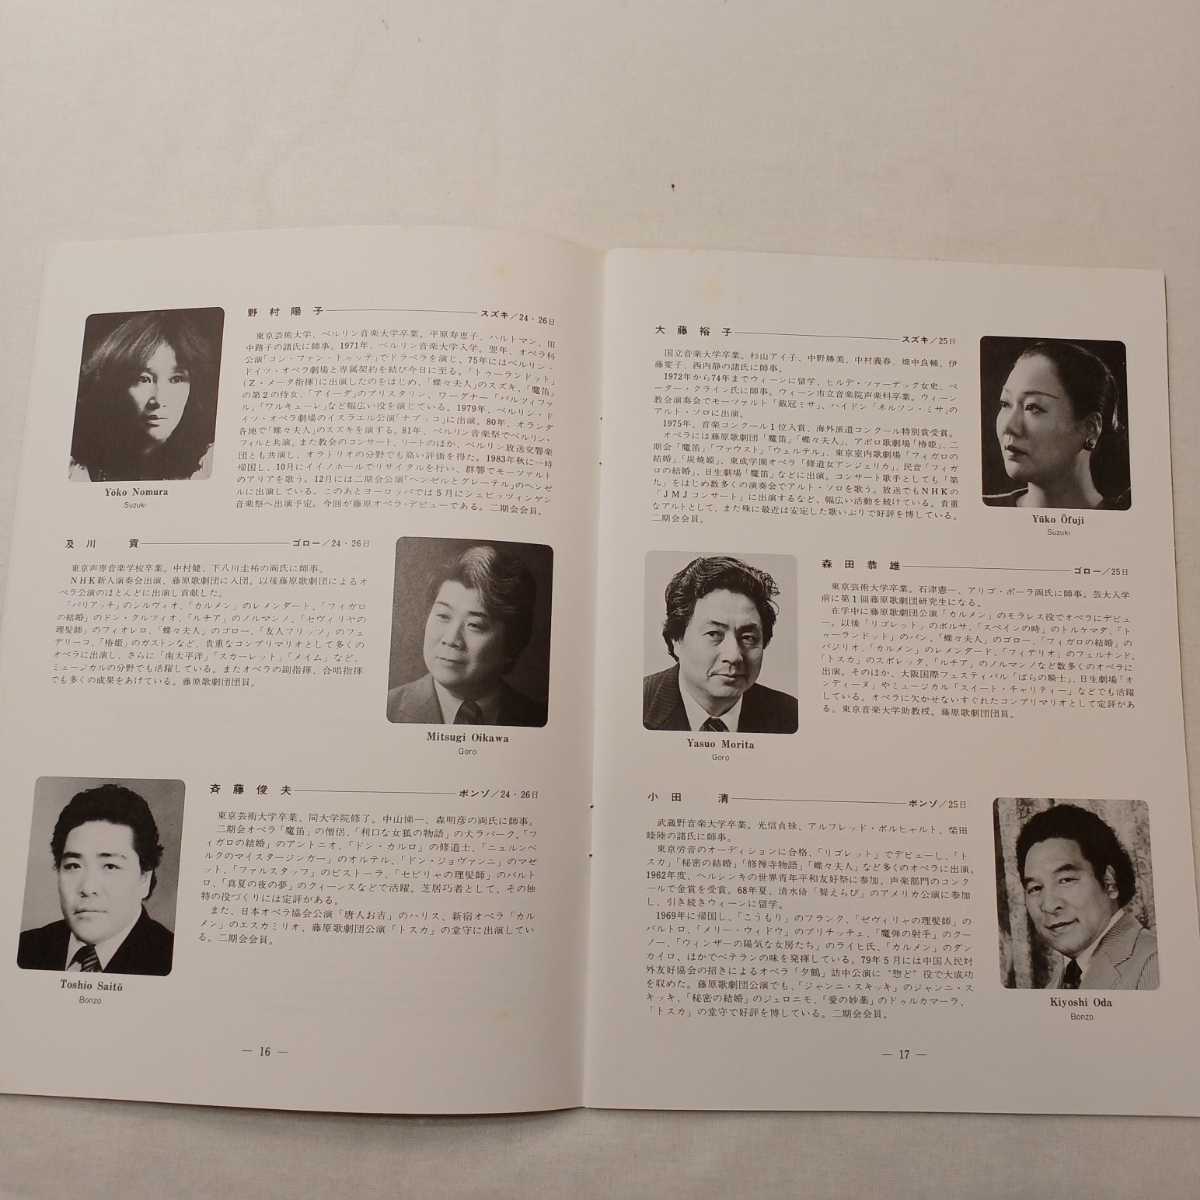 野村陽子 スズキ/24・26日
東京芸術大学、ベルリン音楽大学卒業。平原寿恵子、ハルトマン、田
中路子の諸氏に師事。1971年、ベルリン音楽大学入学。翌年、オペラ科
公演「コシ・ファン・トゥッテ」でドラベラを演じ、75年にはベルリン・
ドイツ・オペラ劇場と専属契約を結び今日に至る。「トゥーランドット」
(Z・メータ指揮)に出演したのをはじめ、「蝶々夫人」のスズキ、「魔笛」
の第2の侍女、「アイーダ」のプリスタリン、ワーグナー「パルツィファ
ル」、「ワルキューレ」など幅広い役を演じている。1979年、ベルリン・ド
イツ・オペラ劇場のイスラエル公演「ナブッコ」に出演。80年、オランダ
各地で「蝶々夫人」のスズキを演ずる。81年、ベルリン音楽祭でベルリン・
フィルと共演。また教会のコンサート、リートのほか、ベルリン放送交響楽
団とも共演し、オラトリオの分野でも高い評価を得た。1983年秋に一時
帰国し、10月にイイノホールでリサイタルを行い、群響でモーツァルト
のアリアを歌う。12月には二期会公演「ヘンゼルとグレーテル」のヘンゼ
ルに出演している。このあとヨーロッパでは5月にシュビッツィンゲン
音楽祭へ出演予定。今回が藤原オペラ・デビューである。二期会会員。
Yoko Nomura
Suzuki
及川 貢 ゴロー/24・26日
東京声専音楽学校卒業。中村健、下八川圭祐の両氏に師事。
NHK新人演奏会出演、藤原歌劇団に入団。以後藤原歌劇団によるオ
ペラ公演のほとんどに出演し貢献した。
「パリアッチ」のシルヴィオ、「カルメン」のレメンダート、「フィガロ
の結婚」のドン・クルツィオ、「ルチア」のノルマンノ、「セヴィリヤの
理髪師」のフィオレロ、「蝶々夫人」のゴロー、「友人フリッツ」のフェ
デリーコ、「椿姫」のガストンなど、貴重なコンプリマリオとして多くの
オペラに出演し、さらに「南太平洋」「スカーレット」「メイム」など、
ミュージカルの分野でも活躍している。またオペラの副指揮、合唱指揮
でも多くの成果をあげている。藤原歌劇団団員。
Mitsugi Oikawa
Goro
斉藤俊夫 ボンゾ/24・26日
東京芸術大学卒業、同大学院修了。中山悌一、森明彦の両氏に師事。
二期会オペラ「魔笛」の僧侶、「利口な女狐の物語」の犬ラパーク、「フ
ィガロの結婚」のアントニオ、「ドン・カルロ」の修道士、「ニュルンベ
ルクのマイスタージンガー」のオルテル、「ドン・ジョヴァンニ」のマゼ
ット、「ファルスタッフ」のピストーラ、「セビリャの理髪師」のバルト
ロ、「真夏の夜の夢」のクィーンスなどで活躍。芝居巧者として、その独
特の役づくりには定評がある。
また、日本オペラ協会公演「唐人お吉」のハリス、新宿オペラ「カル
メン」のエスカミリオ、藤原歌劇団公演「トスカ」の堂守に出演してい
る。二期会会員。
Toshio Saitō
Bonzo
— 16 —
大藤裕子 スズキ/25日
国立音楽大学卒業。杉山アイ子、中野勝美、中村義春、畑中良輔、伊
藤亘子、西内静の諸氏に師事。
1972年から74年までウィーンに留学、ヒルデ・ツァーデック女史、ペ
ーター・クライン氏に師事。ウィーン市立音楽院声楽科卒業。ウィーン
教会演奏会でモーツァルト「戴冠ミサ」、ハイドン「ネルソン・ミサ」の
アルト・ソロに出演。
1975年、音楽コンクール1位入賞、海外派遣コンクール特別賞受賞。
オペラには藤原歌劇団「魔笛」「蝶々夫人」、アポロ歌劇場「椿姫」、二
期会「魔笛」「ファウスト」「ウェルテル」、東京室内歌劇場「フィガロの
結婚」、「炭焼姫」、東成学園オペラ「修道女アンジェリカ」、民音「フィガ
ロの結婚」、日生劇場「魔笛」などに出演。コンサート歌手としても「第
九」をはじめ数多くの演奏会でアルト・ソロを歌う。放送でもNHKの
「JMJコンサート」に出演するなど、幅広い活動を続けている。貴重
なアルトとして、また殊に最近は安定した歌いぶりで好評を博している。
二期会会員。
Yūko Ōfuji
Suzuki
森田恭雄 ゴロー/25日
東京芸術大学卒業。石津憲一、アリゴ・ポーラ両氏に師事。芸大入学
前に第1回藤原歌劇団研究生になる。
在学中に藤原歌劇団公演「カルメン」のモラレス役でオペラにデビュ
ー。以後「リゴレット」のボルサ、「スペインの時」のトルケマダ、「ト
ゥーランドット」のパン、「蝶々夫人」のゴロー、「フィガロの結婚」の
バジリオ、「カルメン」のレメンダード、「フィデリオ」のフェルナンド、
「トスカ」のスポレッタ、「ルチア」のノルマンノなど数多くのオペラに
出演。そのほか、大阪国際フェスティバル「ばらの騎士」、日生劇場「オ
ンディーヌ」やミュージカル「スイート・チャリティー」などでも活躍
している。オペラに欠かせないすぐれたコンプリマリオとして定評があ
る。東京音楽大学助教授。藤原歌劇団団員。
Yasuo Morita
Goro
小田 清 ボンゾ/25日
武蔵野音楽大学卒業。光信貞禄、アルフレッド・ボルヒャルト、柴田
睦陸の諸氏に師事。
東京労音のオーディションに合格、「リゴレット」でデビューし、「ト
スカ」「秘密の結婚」「修禅寺物語」「蝶々夫人」など多くのオペラに出演。
1962年度、ヘルシンキの世界青年平和友好祭に参加、声楽部門のコンク
ールで金賞を受賞。68年夏、清水脩「聟えらび」のアメリカ公演に参加
し、引き続きウィーンに留学。
1969年に帰国し、「こうもり」のフランク、「ゼヴィリャの理髪師」の
バルトロ、「メリー・ウィドウ」のプリチッチェ、「魔弾の射手」のクー
ノー、「ウィンザーの陽気な女房たち」のライヒ氏、「カルメン」のダン
カイロ、ほかでベテランの味を発揮している。79年5月には中国人民対
外友好協会の招きによるオペラ「夕鶴」訪中公演に"惣ど"役で大成功
を収めた。藤原歌劇団公演でも、「ジャンニ・スキッキ」のジャンニ・ス
キッキ、「秘密の結婚」のジェロニモ、「愛の妙薬」のドゥルカマーラ、
「トスカ」の堂守で好評を博している。二期会会員。
Kiyoshi Oda
Bonzo
— 17 —